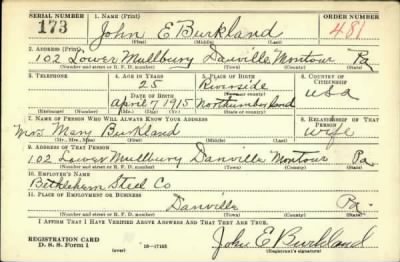 SERIAL NUMBER 1. NAME (Print) ORDER NUMBER
173 John E Burkland 481
(First) (Middle) (Last)
2. ADDRESS (Print)
102 Lower Mullbury Danville Montour Pa
(Number and street or R. F. D. number) (Town) (County) (State)
3. TELEPHONE 4. AGE IN YEARS 5. PLACE OF BIRTH 6. COUNTRY OF CITIZENSHIP
25 Riverside
DATE OF BIRTH (Town or county) USA
April 7 1915 Northumberland
(Exchange) (Number) (Mo.) (Day) (Yr.) (State or country)
7. NAME OF PERSON WHO WILL ALWAYS KNOW YOUR ADDRESS 8. RELATIONSHIP OF THAT PERSON
Mrs Mary Burkland wife
(Mr., Mrs., Miss) (First) (Middle) (Last)
9. ADDRESS OF THAT PERSON
102 Lower Mullbury Danville Montour Pa
(Number and street or R. F. D. number) (Town) (County) (State)
10. EMPLOYER'S NAME
Bethlehem Steel Co
11. PLACE OF EMPLOYMENT OR BUSINESS
Danville Pa.
(Number and street or R. F. D. number) (Town) (County) (State)
I AFFIRM THAT I HAVE VERIFIED ABOVE ANSWERS AND THAT THEY ARE TRUE.
REGISTRATION CARD
D. S. S. Form 1 (over) 16—17105 John E Burkland
(Registrant's signature)